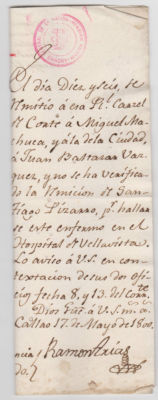 El día Diez y seis, se
remitio à esa Rl. Carcel
de Corte à Miguel Ma-
chuca, y à la de la Ciudad,
à Juan Bastaran Var-
quez, y no se ha verifica-
do la remicion de San-
tiago Lizarro, pr. hallar-
se este enfermo en el
Hospital de Vellavista.
Lo aviso à V.S. en con-
textacion de sus dos ofi-
cios, fecha 8, y 13. del Corrte.
Dios gue. à V.S. m. a.
Callao 17. de Mayo de 1800.
Ramon Arias